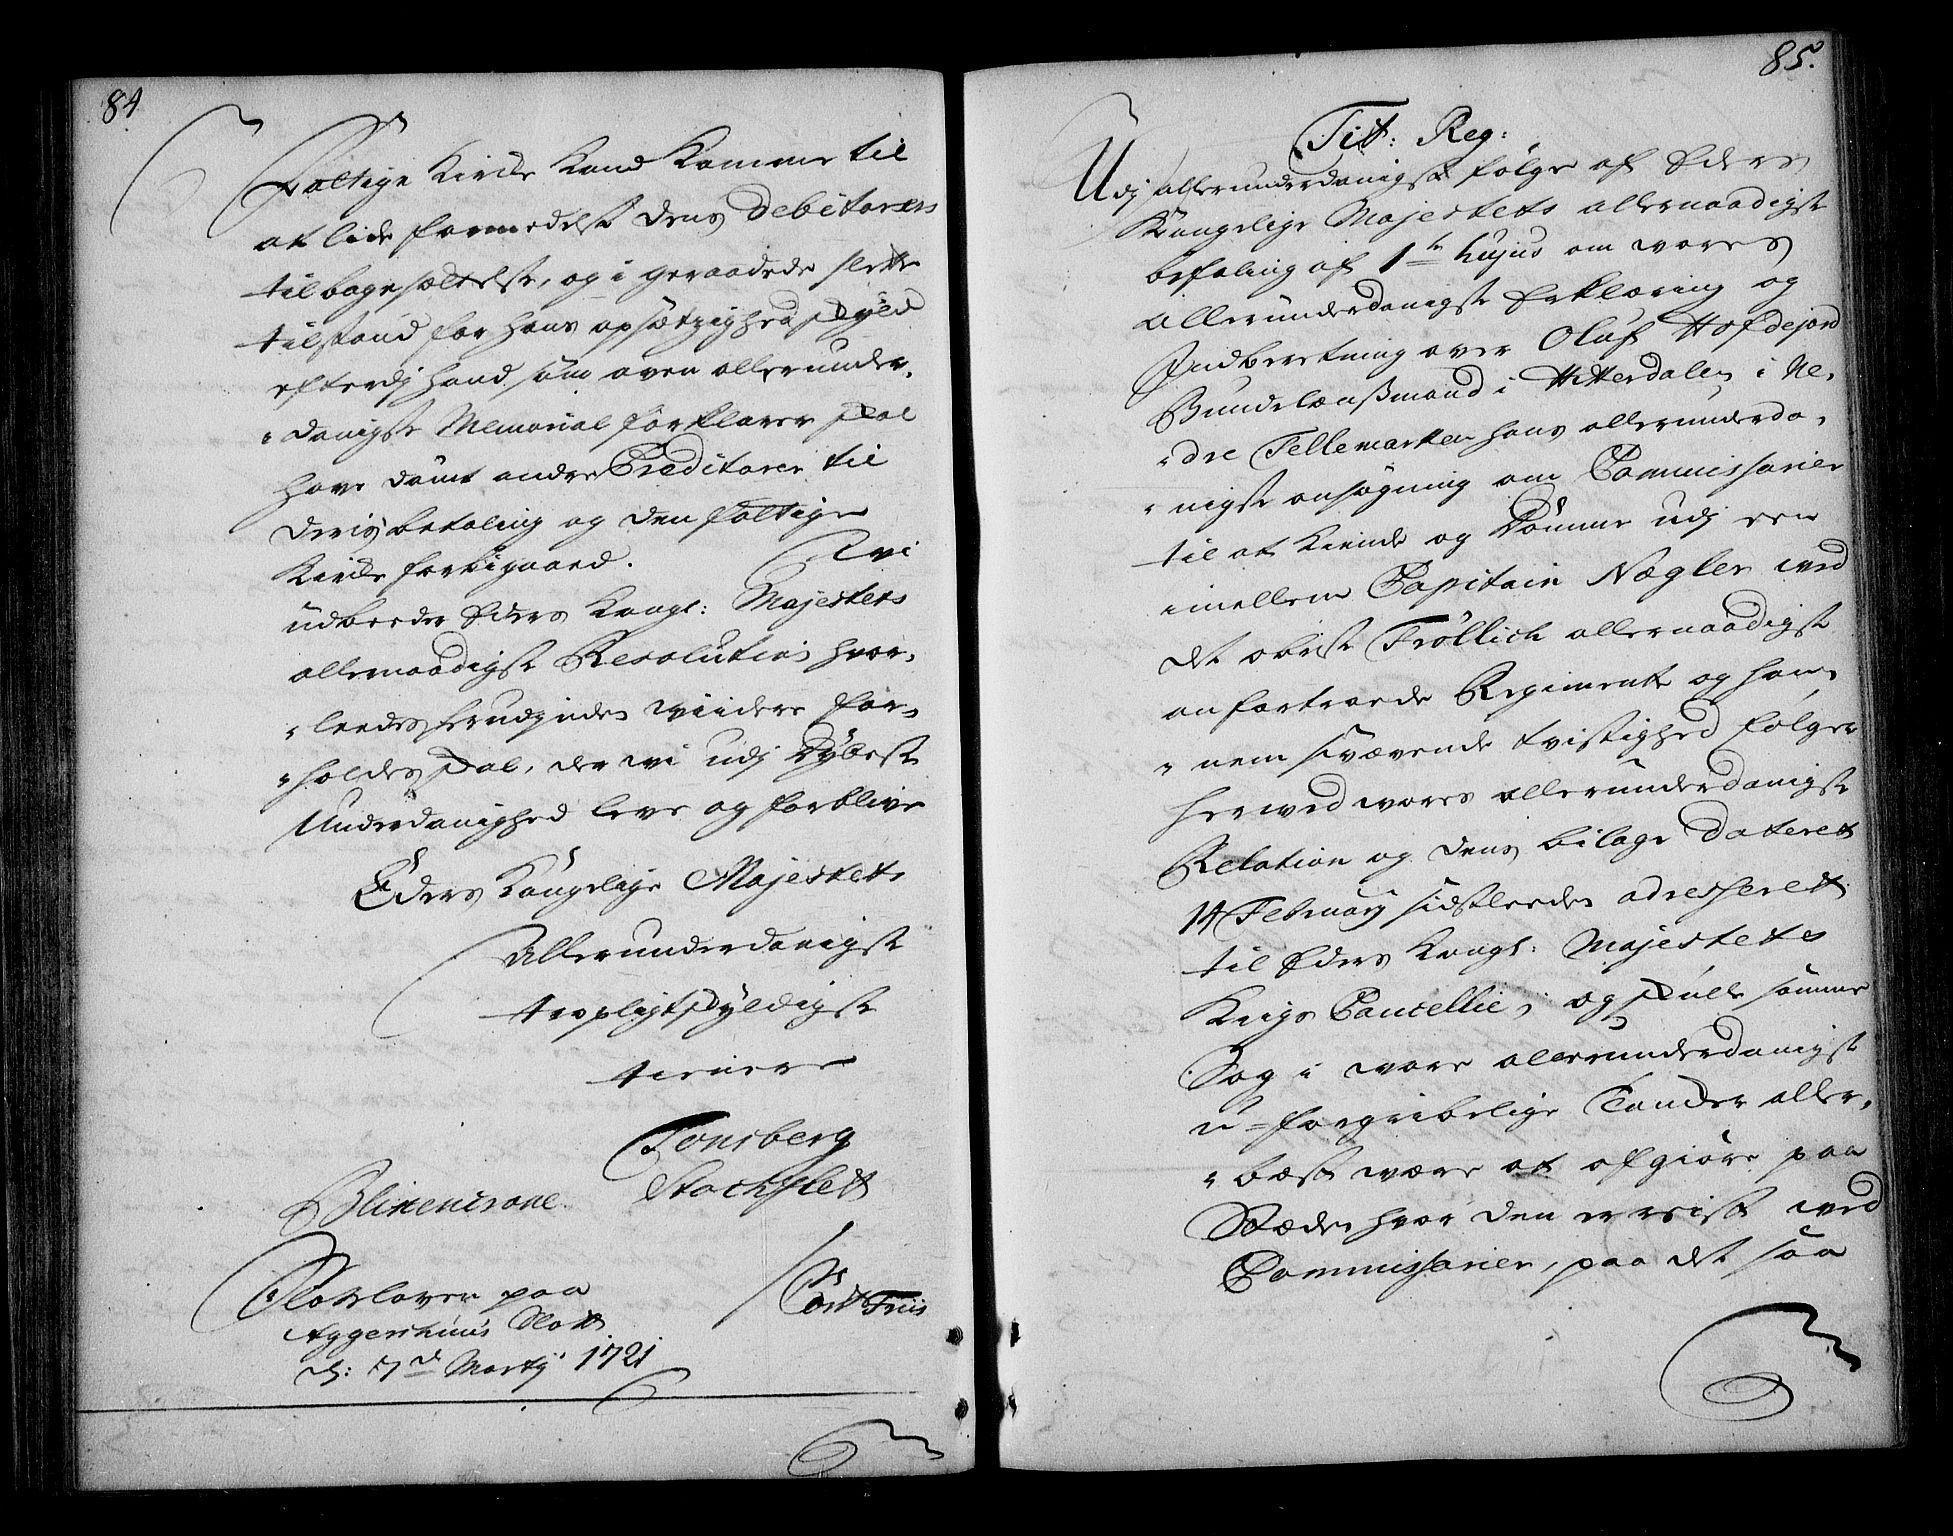 84
fattige Kircke Kand Komme til
at lide formedelst dens Debitorers
tilbagesættelse, og i geraadede slette
tilstand for hans opsætzighed skyld
efterdj hand som oven allerunder-
danigste Memorial forklarer skal
have dømt andre Creditorer til
deris betaling og den fattige
Kircke forbigaaed. Wi
udbeeder Eders Kongl: Majestets
allernaadigste Resolution hvor-
leedes herudjnden wiidere for-
holdes skal, der wi udj dybeste
Underdanighed leve og forblive
Eders Kongelige Majestets
Allerunderdanigste
tropligtskyldigste
tienere
Tonsberg
Blixencrone. Stochflett
Slotzloven paa Cort Friis
Aggershuus Slott
d: 7d Martij 1721
85.
Tit: Reg:
Udj allerunderdanigst følge af Eders
Kongelige Majestets allernaadigste
befaling af 1te hujus om wores
allerunderdanigste Erklæring og
Indberetning over Oluf Hofdejord
Bundelensmand i Hitterdalen i Ne-
dre Tellemarken hans allerunderda-
nigste ansøgning om Commissarier
til at Kiende og Dømme udj een
imellem Capitain Nægler wed
det obriste Frøllich allernaadigst
anfortroede Regimente og ham-
nem svævende tvistighed følger
herwed wores allerunderdanigste
Relation og dens bilage Dateret
14 February sidstleeden adresseret
til Eders Kongl: Majestets
Krigs Cancellie, og skulle samme
Sag i wore allerunderdanigste
u-forgribelige Tancker aller-
best være at afgiøre paa
Stæden hvor den er reist wed
Commissarier, paa det saa